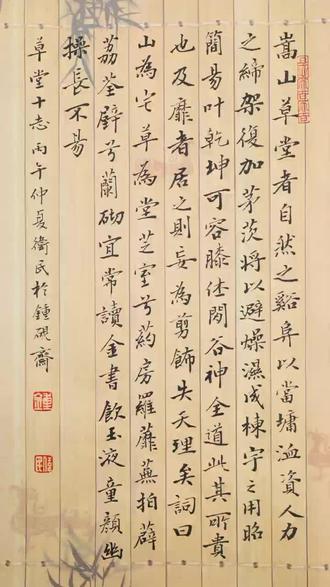 嵩山草堂者自然之谿阜以當墉洫資人力
之締架復加茅茨將以避燥濕成棟宇之用昭
簡易叶乾坤可容膝休閑谷神全道此其所貴
也及靡者居之則妄為剪飾失天理矣詞曰
山為宅草為堂芝室兮葯房羅蘼蕪拍薜
荔荃壁兮蘭砌宜常讀金書飲玉液童顏幽
操長不易
草堂十志丙午仲夏衛民於鍾硯齋